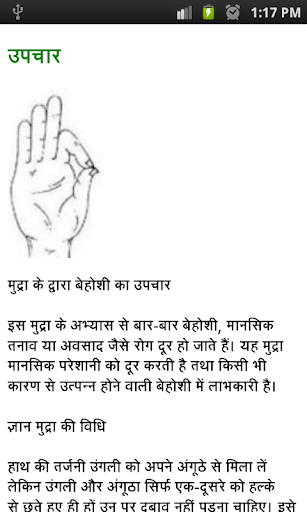 1:17 PM
उपचार
मुद्रा के द्वारा बेहोशी का उपचार
इस मुद्रा के अभ्यास से बार-बार बेहोशी, मानसिक
तनाव या अवसाद जैसे रोग दूर हो जाते हैं। यह मुद्रा
मानसिक परेशानी को दूर करती है तथा किसी भी
कारण से उत्पन्न होने वाली बेहोशी में लाभकारी है।
ज्ञान मुद्रा की विधि
हाथ की तर्जनी उंगली को अपने अंगूठे से मिला लें
लेकिन उंगली और अंगूठा सिर्फ एक-दूसरे को हल्के
से छूते हुए ही हों उन पर दबाव नहीं पड़ना चाहिए। इसे